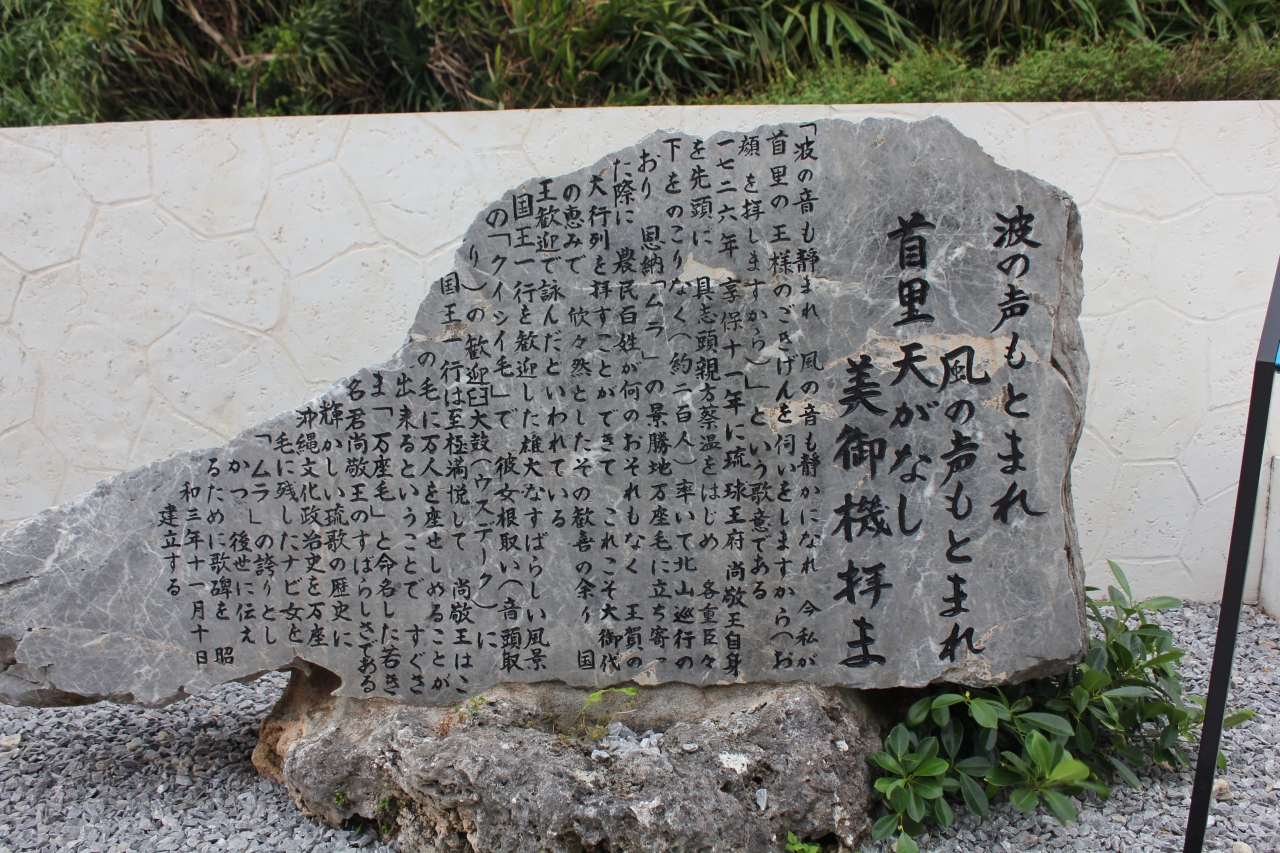 波の声もとまれ
風の声もとまれ
首里天がなし
美御機拝ま
「波の音も静まれ 風の音も静かになれ 今私が
首里の王様のごきげんを伺いをしますから(お
顔を拝しますから)」という歌意である
一七二六年 享保十一年に琉球王府 尚敬王自身
を先頭に 具志頭親方蔡温をはじめ 各重臣々
下をのこりなく(約二百人)率いて北山巡行の
おり 恩納「ムラ」の景勝地万座毛に立ち寄っ
た際に 農民百姓が何のおそれもなく 王賀の
大行列を拝すことができて これこそ大御代
の恵みで 欣々然としたその歓喜の余り 国
王歓迎で詠んだといわれている
国王一行を歓迎した雄大なすばらしい風景
の「クイシイ毛」で 彼女根取い(音頭取
り)の歓迎臼大鼓(ウスデーク)に
国王一行は至極満悦して 尚敬王はこ
の毛に万人を座せしめることが
出来るということで すぐさ
ま「万座毛」と命名した若き
名君尚敬王のすばらしさである
輝かしい琉歌の歴史に
沖縄文化政治史を万座
毛に残したナビ女を
「ムラ」の誇りとし
かつ 後世に伝え
るために歌碑を 昭
和三年十一月十日
建立する